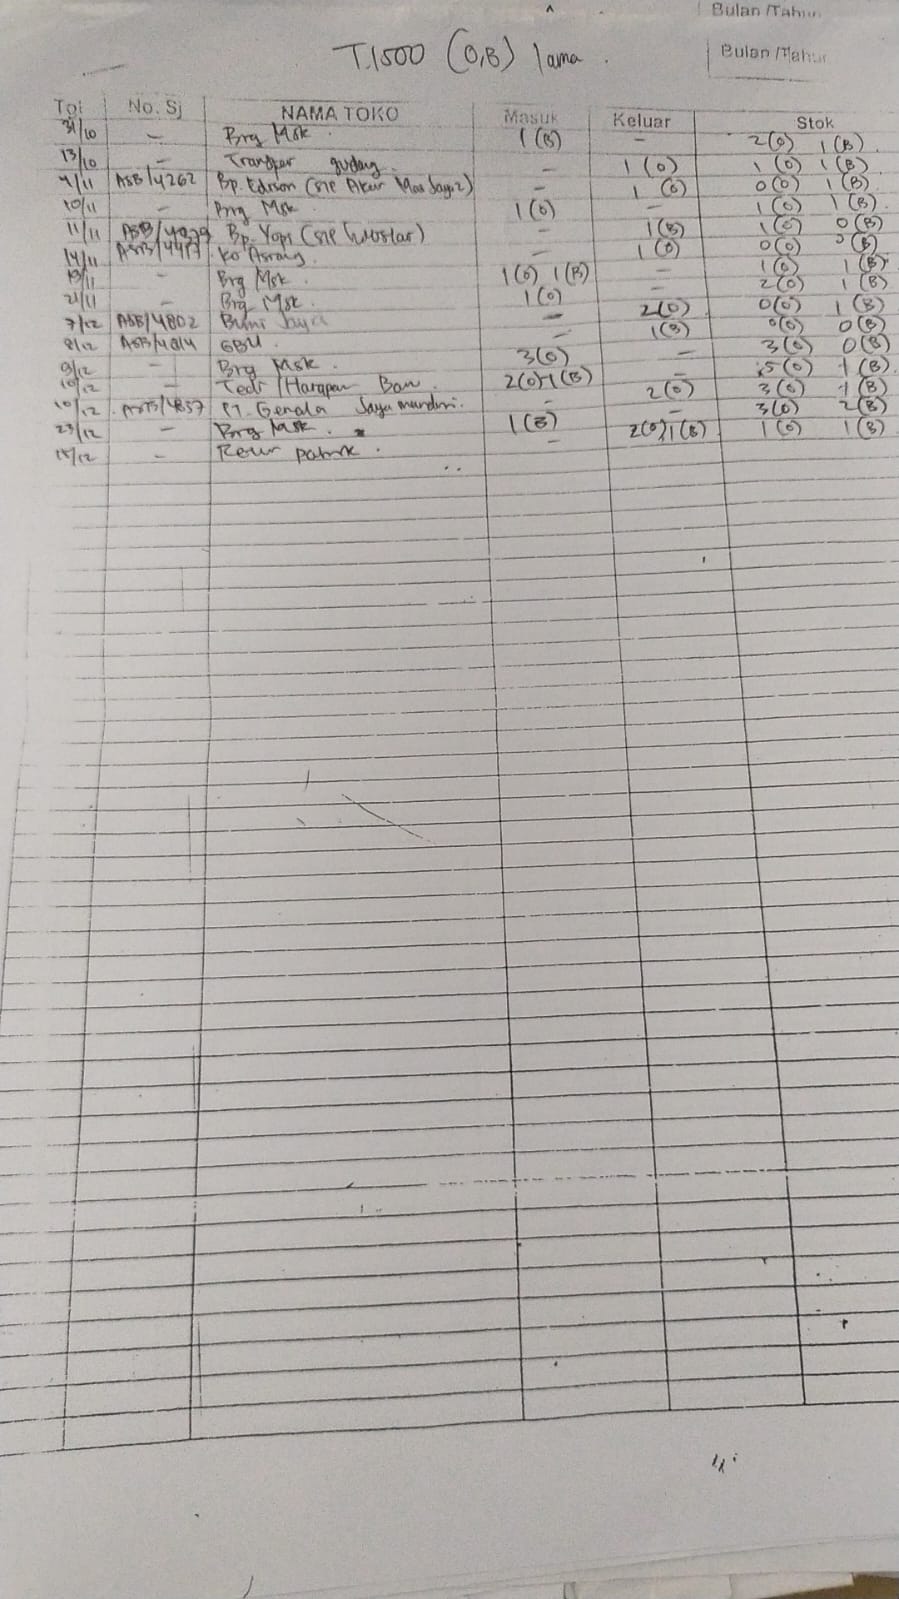 Bulan /Tahun
T.1500 (O,B) lama.
Bulan /Tahun
Tgl No. Sj NAMA TOKO Masuk Keluar Stok
31/10 - Brg Msk. 1(B) - 2(O) 1(B)
13/10 - Transfer gudang. - 1(O) 1(O) 1(B)
4/11 ASB/4262 Bp. Edison - 1(O) 0(O) 1(B)
10/11 - Brg Msk. 1(O) - 1(O) 1(B)
11/11 Bp. Yopi - 1(B) 1(O) 0(B)
14/11 Ko - 1(O) 0(O) 0(B)
19/11 - Brg Msk. 1(O) 1(B) - 1(O) 1(B)
21/11 - Brg Msk. 1(O) - 2(O) 1(B)
7/12 ASB/4802 Bumi Jaya - 2(O) 0(O) 1(B)
8/12 ASB/4814 GBU. - 1(B) 0(O) 0(B)
9/12 - Brg Msk. 3(O) - 3(O) 0(B)
10/12 - Tedi /Harapan Ban. 2(O) 1(B) 5(O) 1(B)
10/12 PT. - 2(O) 3(O) 1(B)
23/12 - Brg Msk. 1(B) - 3(O) 2(B)
15/12 - Retur pabrik. - 2(O) 1(B) 1(O) 1(B)